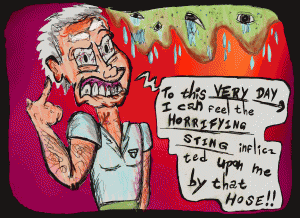 To this VERY DAY
I can feel the
HORRIFYING
STING inflic
ted upon me
by that
HOSE!!